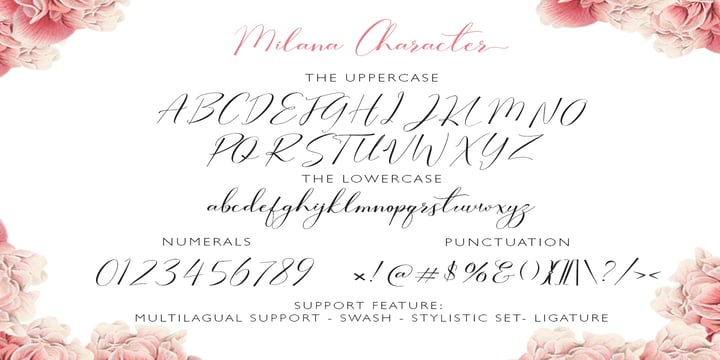 Milana Character
THE UPPERCASE
ABCDEFGHIJKLMNO
PQRSTUVWXYZ
THE LOWERCASE
abcdefghijklmnopqrstuvwxyz
NUMERALS
PUNCTUATION
0123456789
×!@#$%&()[]{}|\?/><
SUPPORT FEATURE:
MULTILAGUAL SUPPORT - SWASH - STYLISTIC SET- LIGATURE